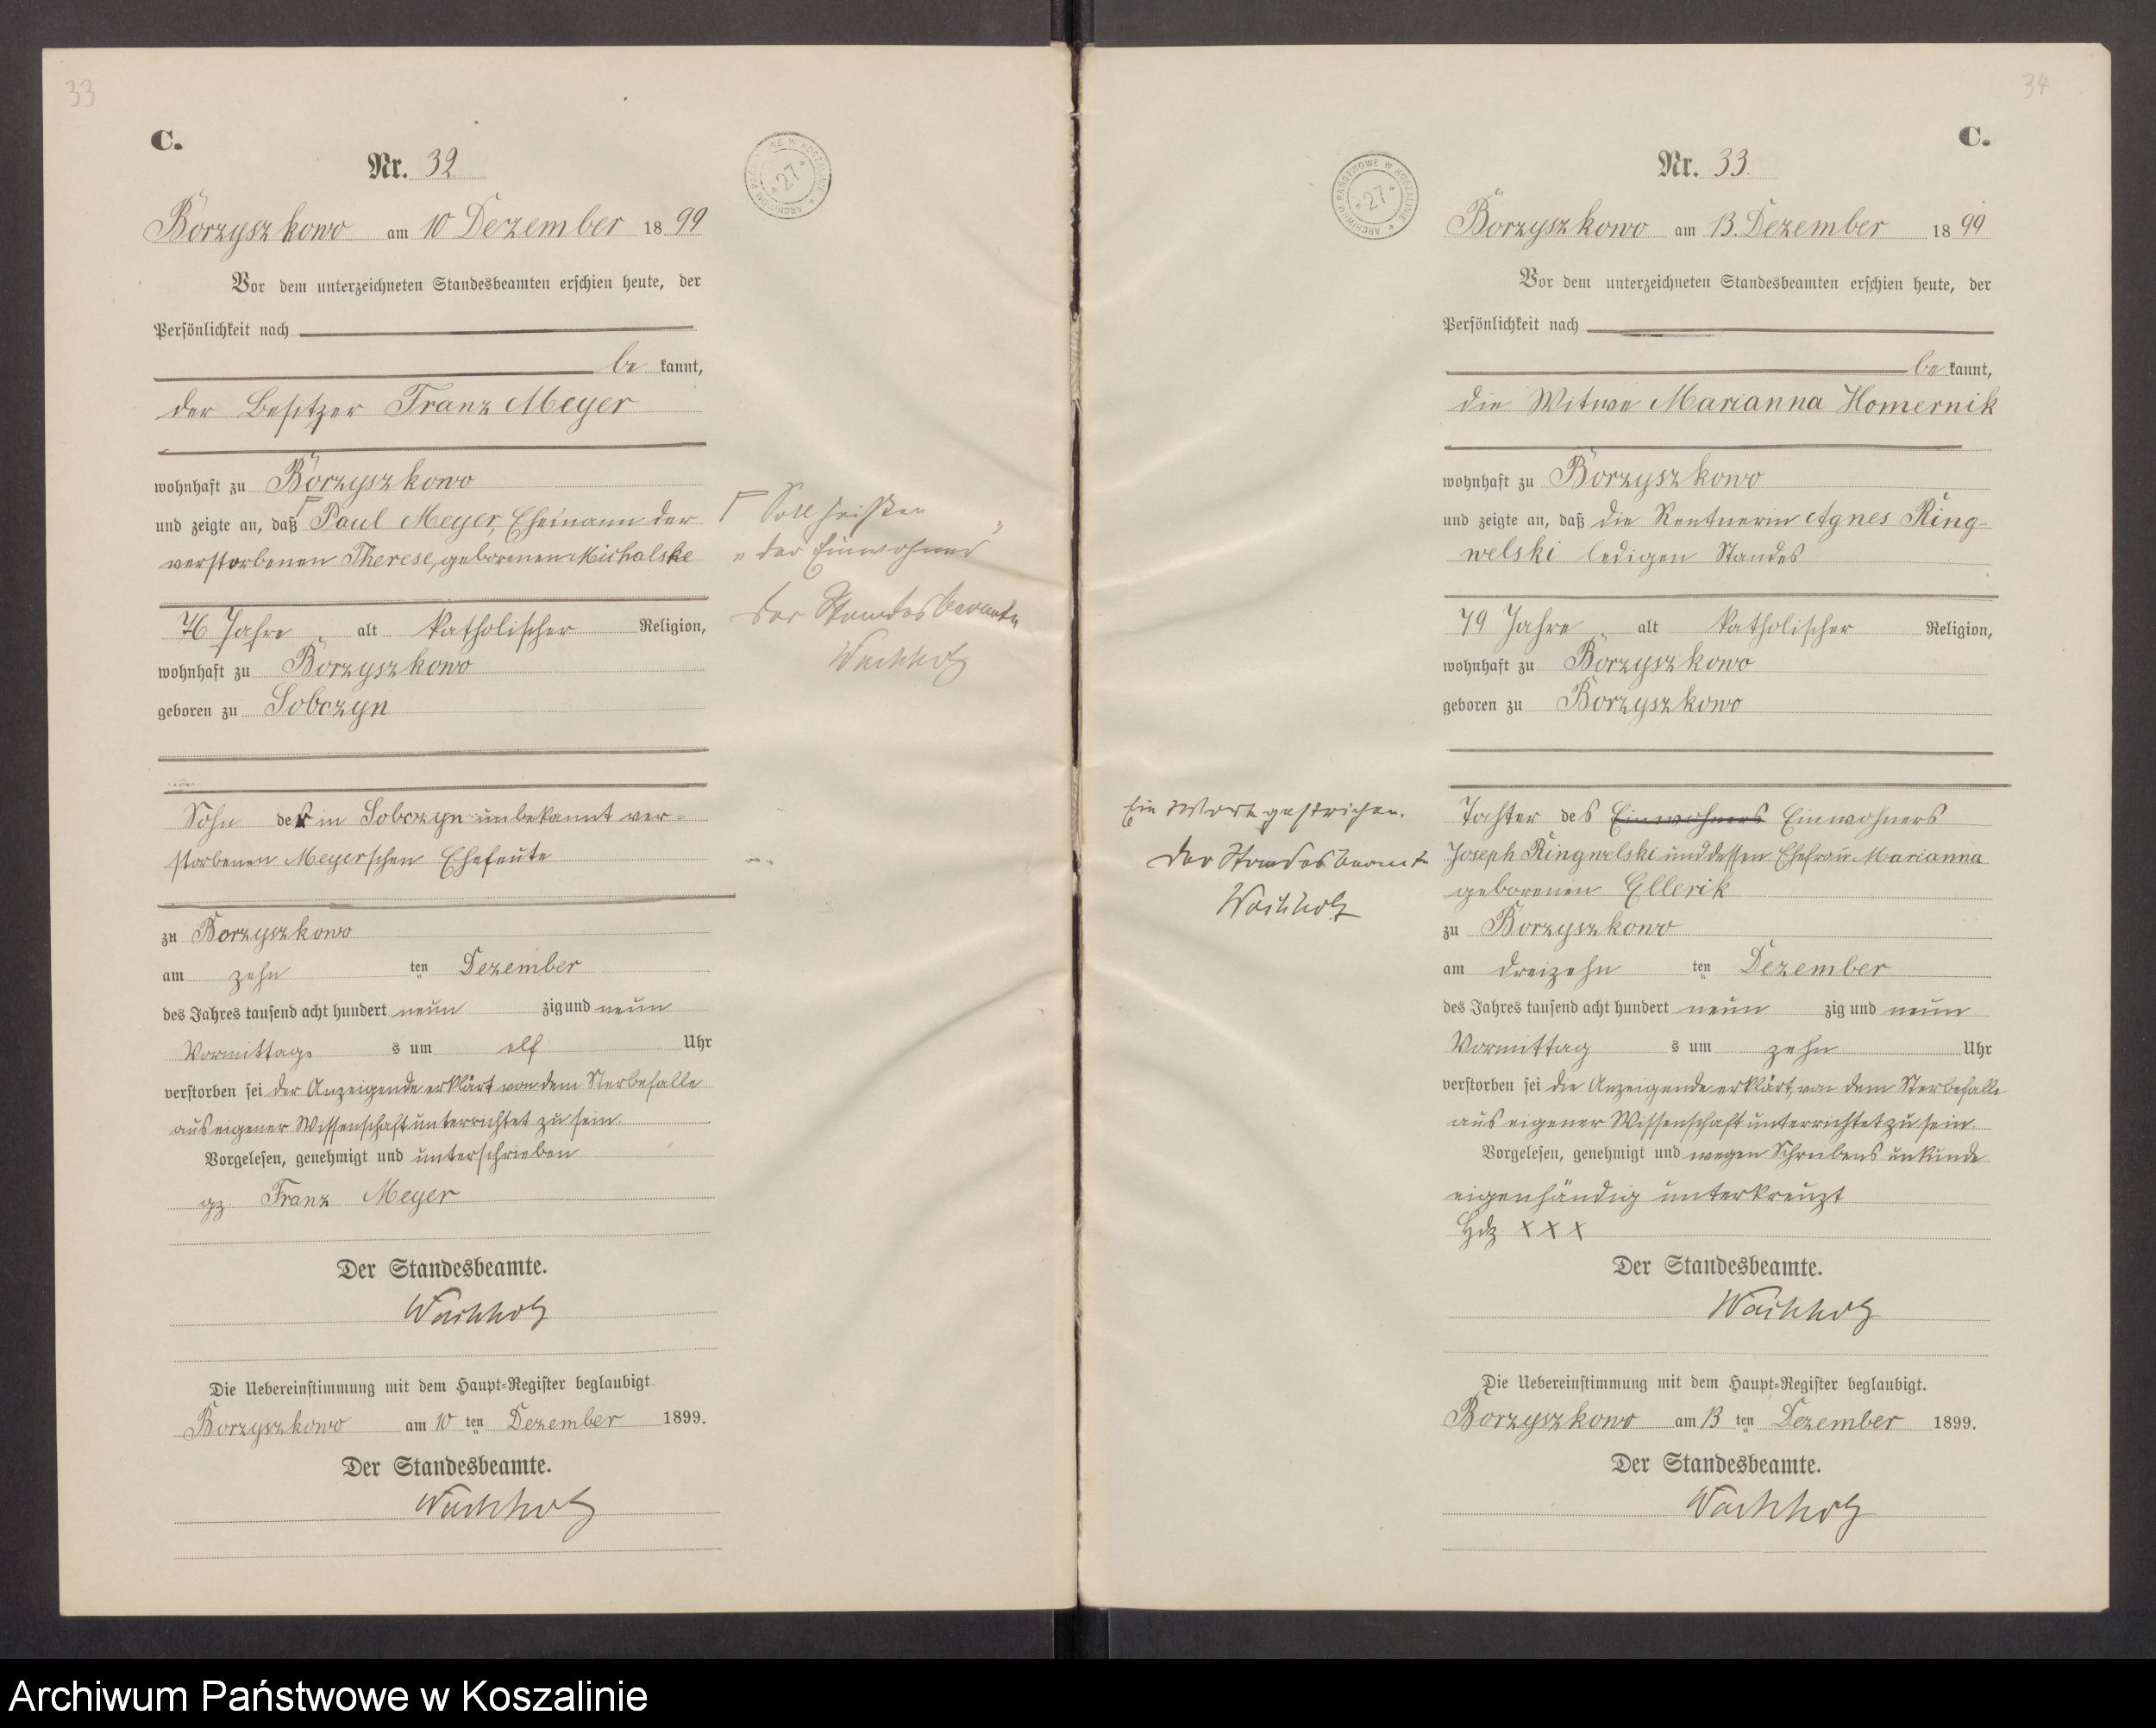 33
C.
Nr. 32
ARCHIWUM PAŃSTWOWE W KOSZALINIE * 27 *
Borzyszkowo am 10 Dezember 1899
Vor dem unterzeichneten Standesbeamten erschien heute, der
Persönlichkeit nach
be kannt,
der Besitzer Franz Meyer
wohnhaft zu Borzyszkowo
und zeigte an, daß Γ Paul Meyer, Ehemann der
verstorbenen Therese, geborenen Michalske
76 Jahre alt katholischer Religion,
wohnhaft zu Borzyszkowo
geboren zu Sobczyn
Sohn der in Sobczyn unbekannt ver=
storbenen Meyerschen Eheleute
zu Borzyszkowo
am zehn ten Dezember
des Jahres tausend acht hundert neun zig und neun
Vormittags s um elf Uhr
verstorben sei der Anzeigende erklärt von dem Sterbefalle
aus eigener Wissenschaft unterrichtet zu sein.
Vorgelesen, genehmigt und unterschrieben
gz. Franz Meyer
Der Standesbeamte.
Wachholz
Die Uebereinstimmung mit dem Haupt=Register beglaubigt
Borzyszkowo am 10 ten Dezember 1899.
Der Standesbeamte.
Wachholz
Γ Soll heißen
„der Einwohner"
Der Standesbeamte
Wachholz
34
C.
Nr. 33.
ARCHIWUM PAŃSTWOWE W KOSZALINIE * 27 *
Borzyszkowo am 13. Dezember 1899
Vor dem unterzeichneten Standesbeamten erschien heute, der
Persönlichkeit nach
be kannt,
die Witwe Marianna Homernik
wohnhaft zu Borzyszkowo
und zeigte an, daß die Rentnerin Agnes Ring=
welski ledigen Standes
79 Jahre alt katholischer Religion,
wohnhaft zu Borzyszkowo
geboren zu Borzyszkowo
Tochter des Einwohners Einwohners
Joseph Ringwelski und dessen Ehefrau Marianna
geborenen Ellerik
zu Borzyszkowo
am dreizehn ten Dezember
des Jahres tausend acht hundert neun zig und neun
Vormittag s um zehn Uhr
verstorben sei die Anzeigende erklärt, von dem Sterbefalle
aus eigener Wissenschaft unterrichtet zu sein.
Vorgelesen, genehmigt und wegen Schreibens unkunde
eigenhändig unterkreuzt
Hdz. X X X
Der Standesbeamte.
Wachholz
Die Uebereinstimmung mit dem Haupt=Register beglaubigt.
Borzyszkowo am 13 ten Dezember 1899.
Der Standesbeamte.
Wachholz
Ein Wort gestrichen.
Der Standesbeamte
Wachholz
Archiwum Państwowe w Koszalinie